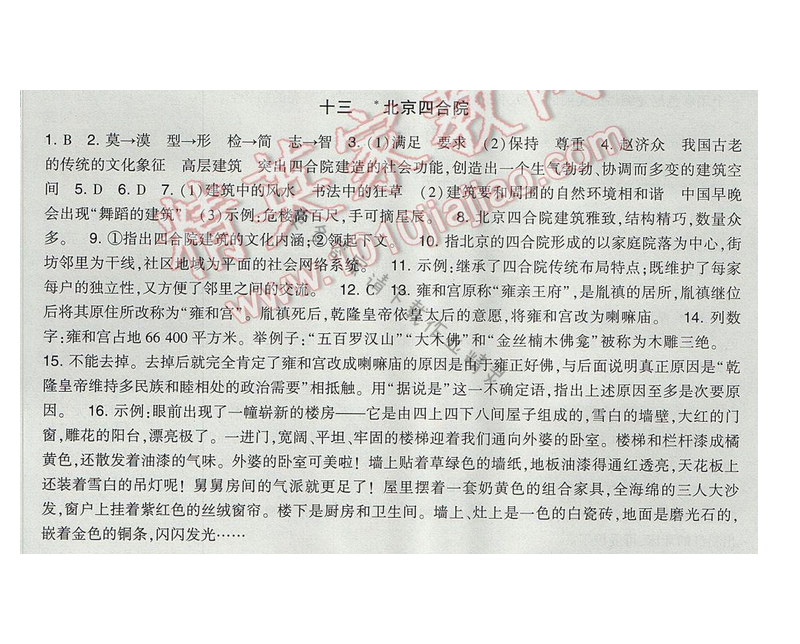 十三 *北京四合院
1. B 2. 莫→漠 型→形 检→简 志→智 3. (1)满足 要求 (2)保持 尊重 4. 赵济众 我国古老
的传统的文化象征 高层建筑 突出四合院建造的社会功能,创造出一个生气勃勃、协调而多变的建筑空
间 5. D 6. D 7. (1)建筑中的风水 书法中的狂草 (2)建筑要和周围的自然环境相和谐 中国早晚
会出现“舞蹈的建筑” (3)示例:危楼高百尺,手可摘星辰。 8. 北京四合院建筑雅致,结构精巧,数量众
多。 9. ①指出四合院建筑的文化内涵;②领起下文。 10. 指北京的四合院形成的以家庭院落为中心,街
坊邻里为干线,社区地域为平面的社会网络系统。 11. 示例:继承了四合院传统布局特点;既维护了每家
每户的独立性,又方便了邻里之间的交流。 12. C 13. 雍和宫原称“雍亲王府”,是胤禛的居所,胤禛继位
后将其原住所改称为“雍和宫”。胤禛死后,乾隆皇帝依皇太后的意愿,将雍和宫改为喇嘛庙。 14. 列数
字:雍和宫占地 66 400 平方米。举例子:“五百罗汉山”“大木佛”和“金丝楠木佛龛”被称为木雕三绝。
15. 不能去掉。去掉后就完全肯定了雍和宫改成喇嘛庙的原因是由于雍正好佛,与后面说明真正原因是“乾
隆皇帝维持多民族和睦相处的政治需要”相抵触。用“据说是”这一不确定语,指出上述原因至多是次要原
因。 16. 示例:眼前出现了一幢崭新的楼房——它是由四上四下八间屋子组成的,雪白的墙壁,大红的门
窗,雕花的阳台,漂亮极了。一进门,宽阔、平坦、牢固的楼梯迎着我们通向外婆的卧室。楼梯和栏杆漆成橘
黄色,还散发着油漆的气味。外婆的卧室可美啦!墙上贴着草绿色的墙纸,地板油漆得通红透亮,天花板上
还装着雪白的吊灯呢!舅舅房间的气派就更足了!屋里摆着一套奶黄色的组合家具,全海绵的三人大沙
发,窗户上挂着紫红色的丝绒窗帘。楼下是厨房和卫生间。墙上、灶上是一色的白瓷砖,地面是磨光石的,
嵌着金色的铜条,闪闪发光……
精英家教网
www.1010jiajiao.com